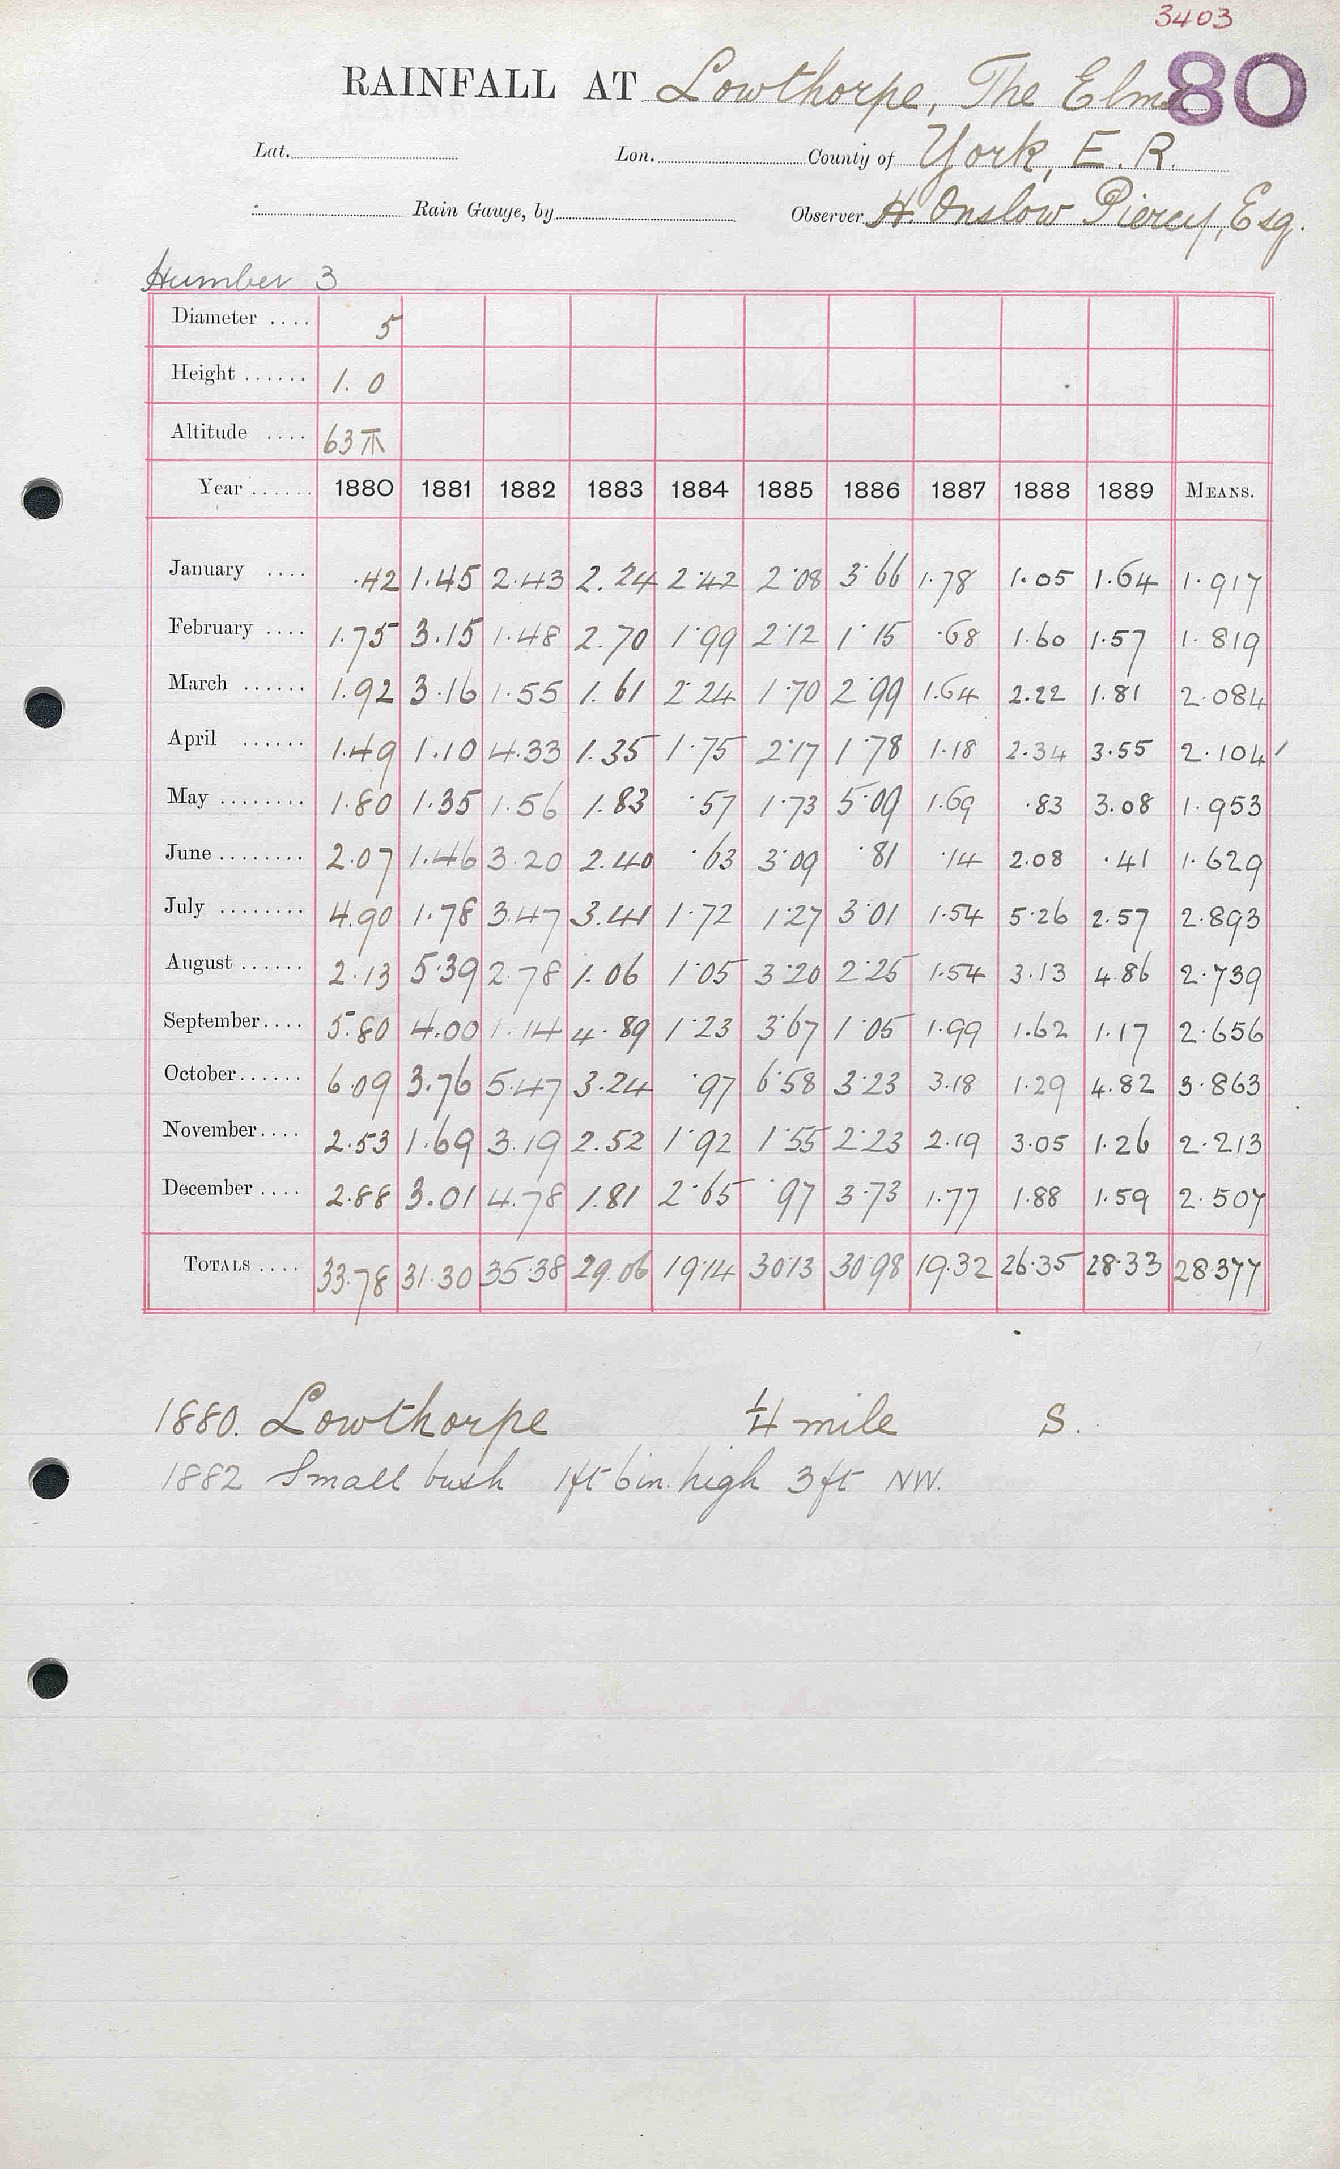 3403
RAINFALL AT Lowthorpe, The Elms 80
Lat. Lon. County of York, E. R.
Rain Gauge, by Observer H. Onslow Piercy, Esq.
Humber 3
Diameter .... 5
Height ...... 1. 0
Altitude .... 63
Year ...... 1880 1881 1882 1883 1884 1885 1886 1887 1888 1889 MEANS.
January .... .42 1.45 2.43 2.24 2.42 2.08 3.66 1.78 1.05 1.64 1.917
February .... 1.75 3.15 1.48 2.70 1.99 2.12 1.15 .68 1.60 1.57 1.819
March ...... 1.92 3.16 1.55 1.61 2.24 1.70 2.99 1.64 2.22 1.81 2.084
April ...... 1.49 1.10 4.33 1.35 1.75 2.17 1.78 1.18 2.34 3.55 2.104
May ........ 1.80 1.35 1.56 1.83 .57 1.73 5.09 1.69 .83 3.08 1.953
June ........ 2.07 1.46 3.20 2.40 .63 3.09 .81 .14 2.08 .41 1.629
July ........ 4.90 1.78 3.47 3.41 1.72 1.27 3.01 1.54 5.26 2.57 2.893
August ...... 2.13 5.39 2.78 1.06 1.05 3.20 2.25 1.54 3.13 4.86 2.739
September.... 5.80 4.00 1.14 4.89 1.23 3.67 1.05 1.99 1.62 1.17 2.656
October...... 6.09 3.76 5.47 3.24 .97 6.58 3.23 3.18 1.29 4.82 3.863
November.... 2.53 1.69 3.19 2.52 1.92 1.55 2.23 2.19 3.05 1.26 2.213
December .... 2.88 3.01 4.78 1.81 2.65 .97 3.73 1.77 1.88 1.59 2.507
TOTALS .... 33.78 31.30 35.38 29.06 19.14 30.13 30.98 19.32 26.35 28.33 28.377
1880. Lowthorpe 1/4 mile S.
1882 Small bush 1ft 6in. high 3 ft NW.